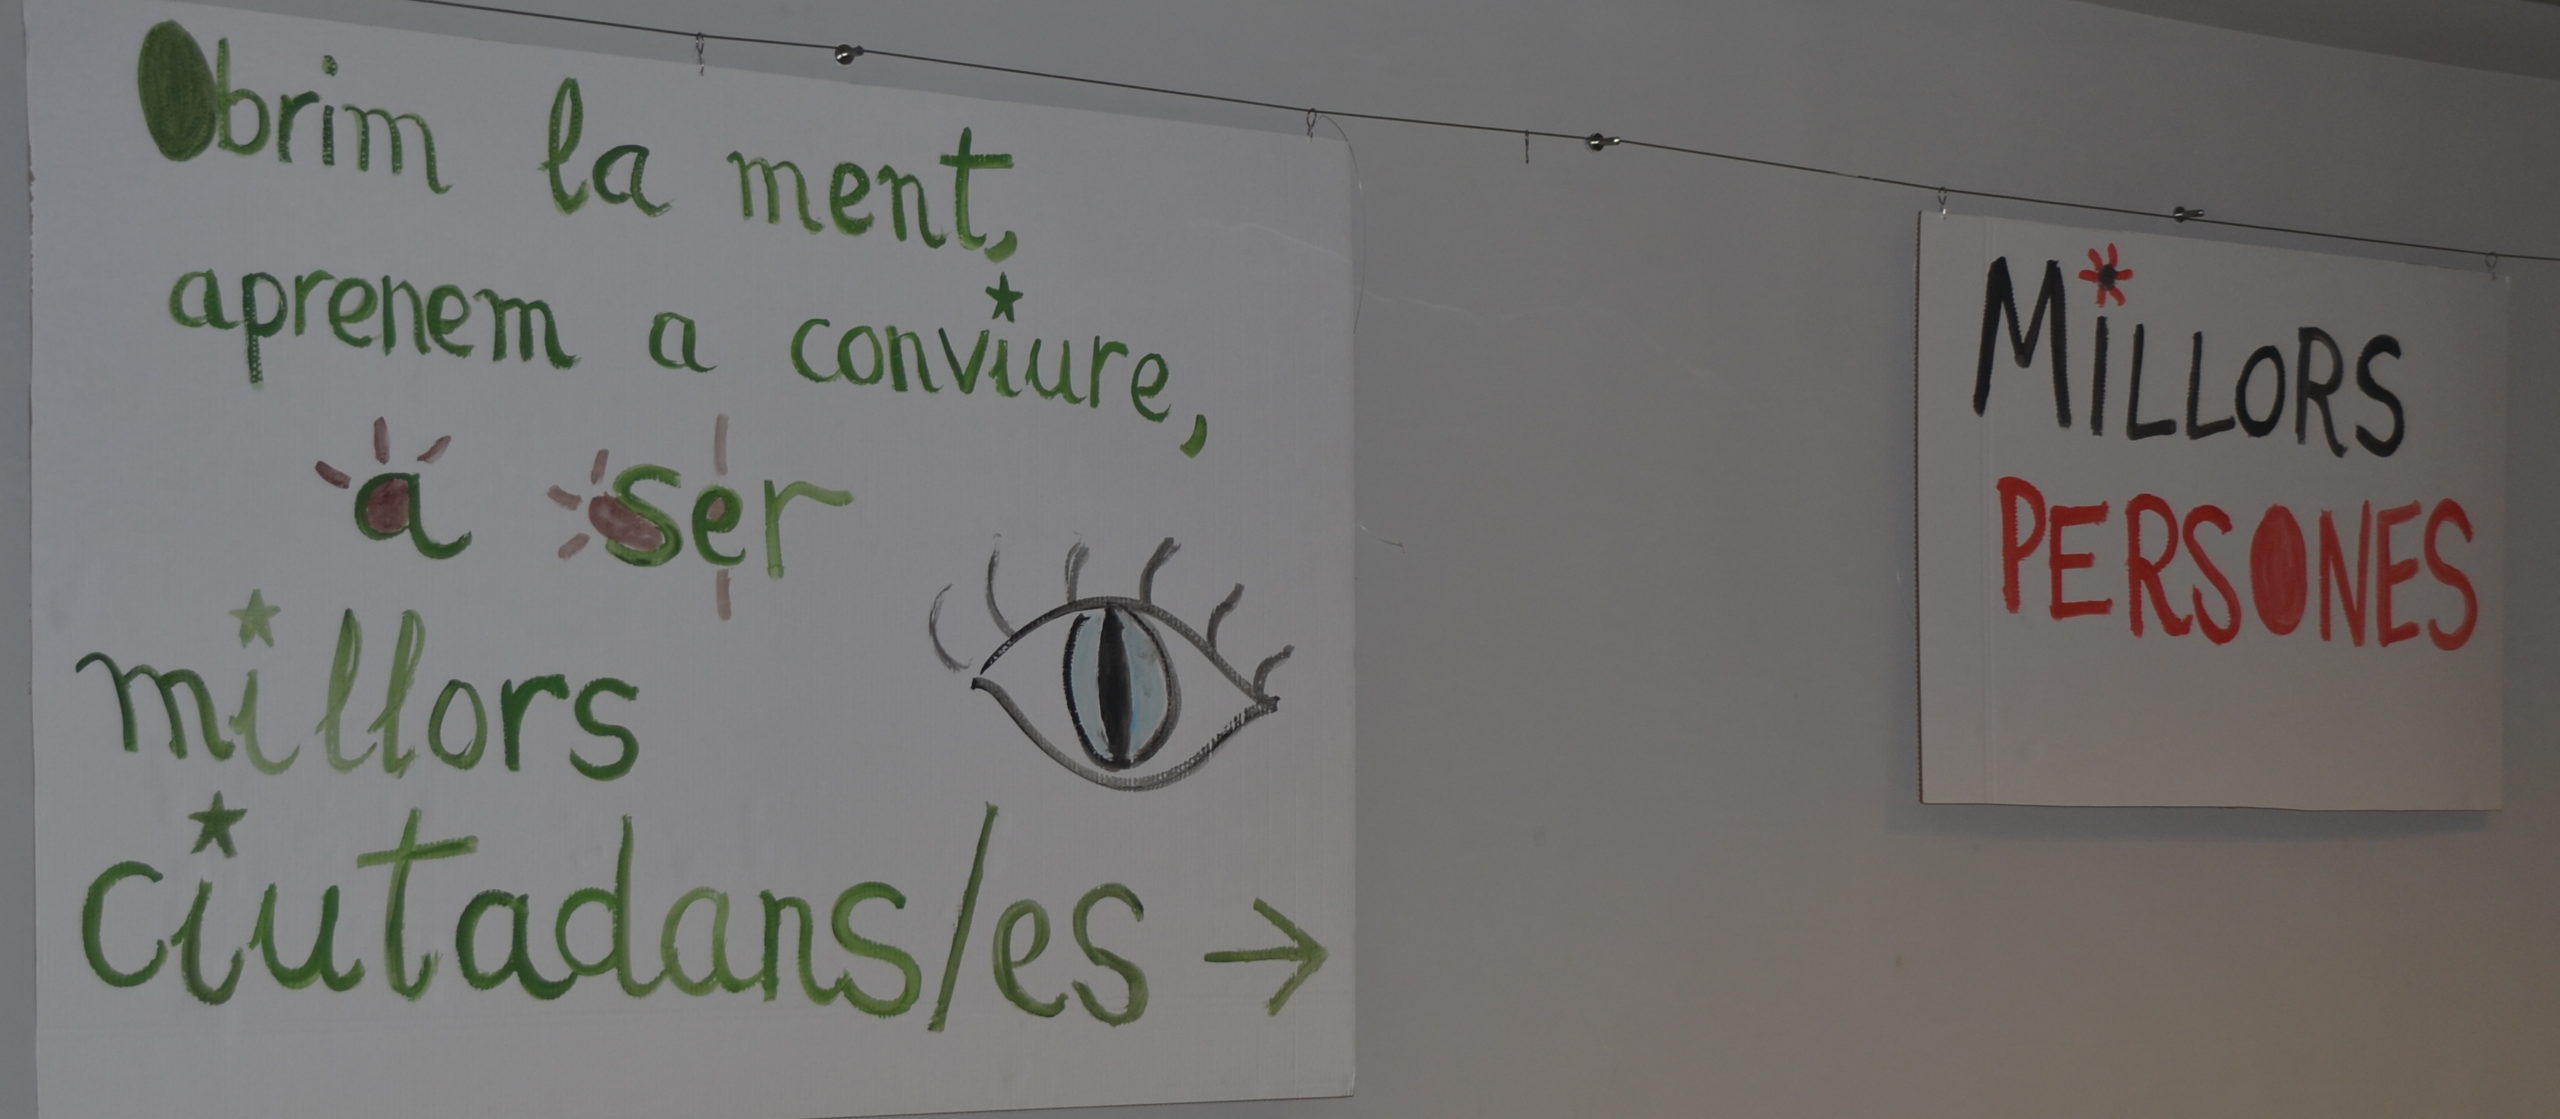 Obrim la ment,
aprenem a conviure,
a ser
millors
ciutadans/es →
MiLLORS
PERSONES